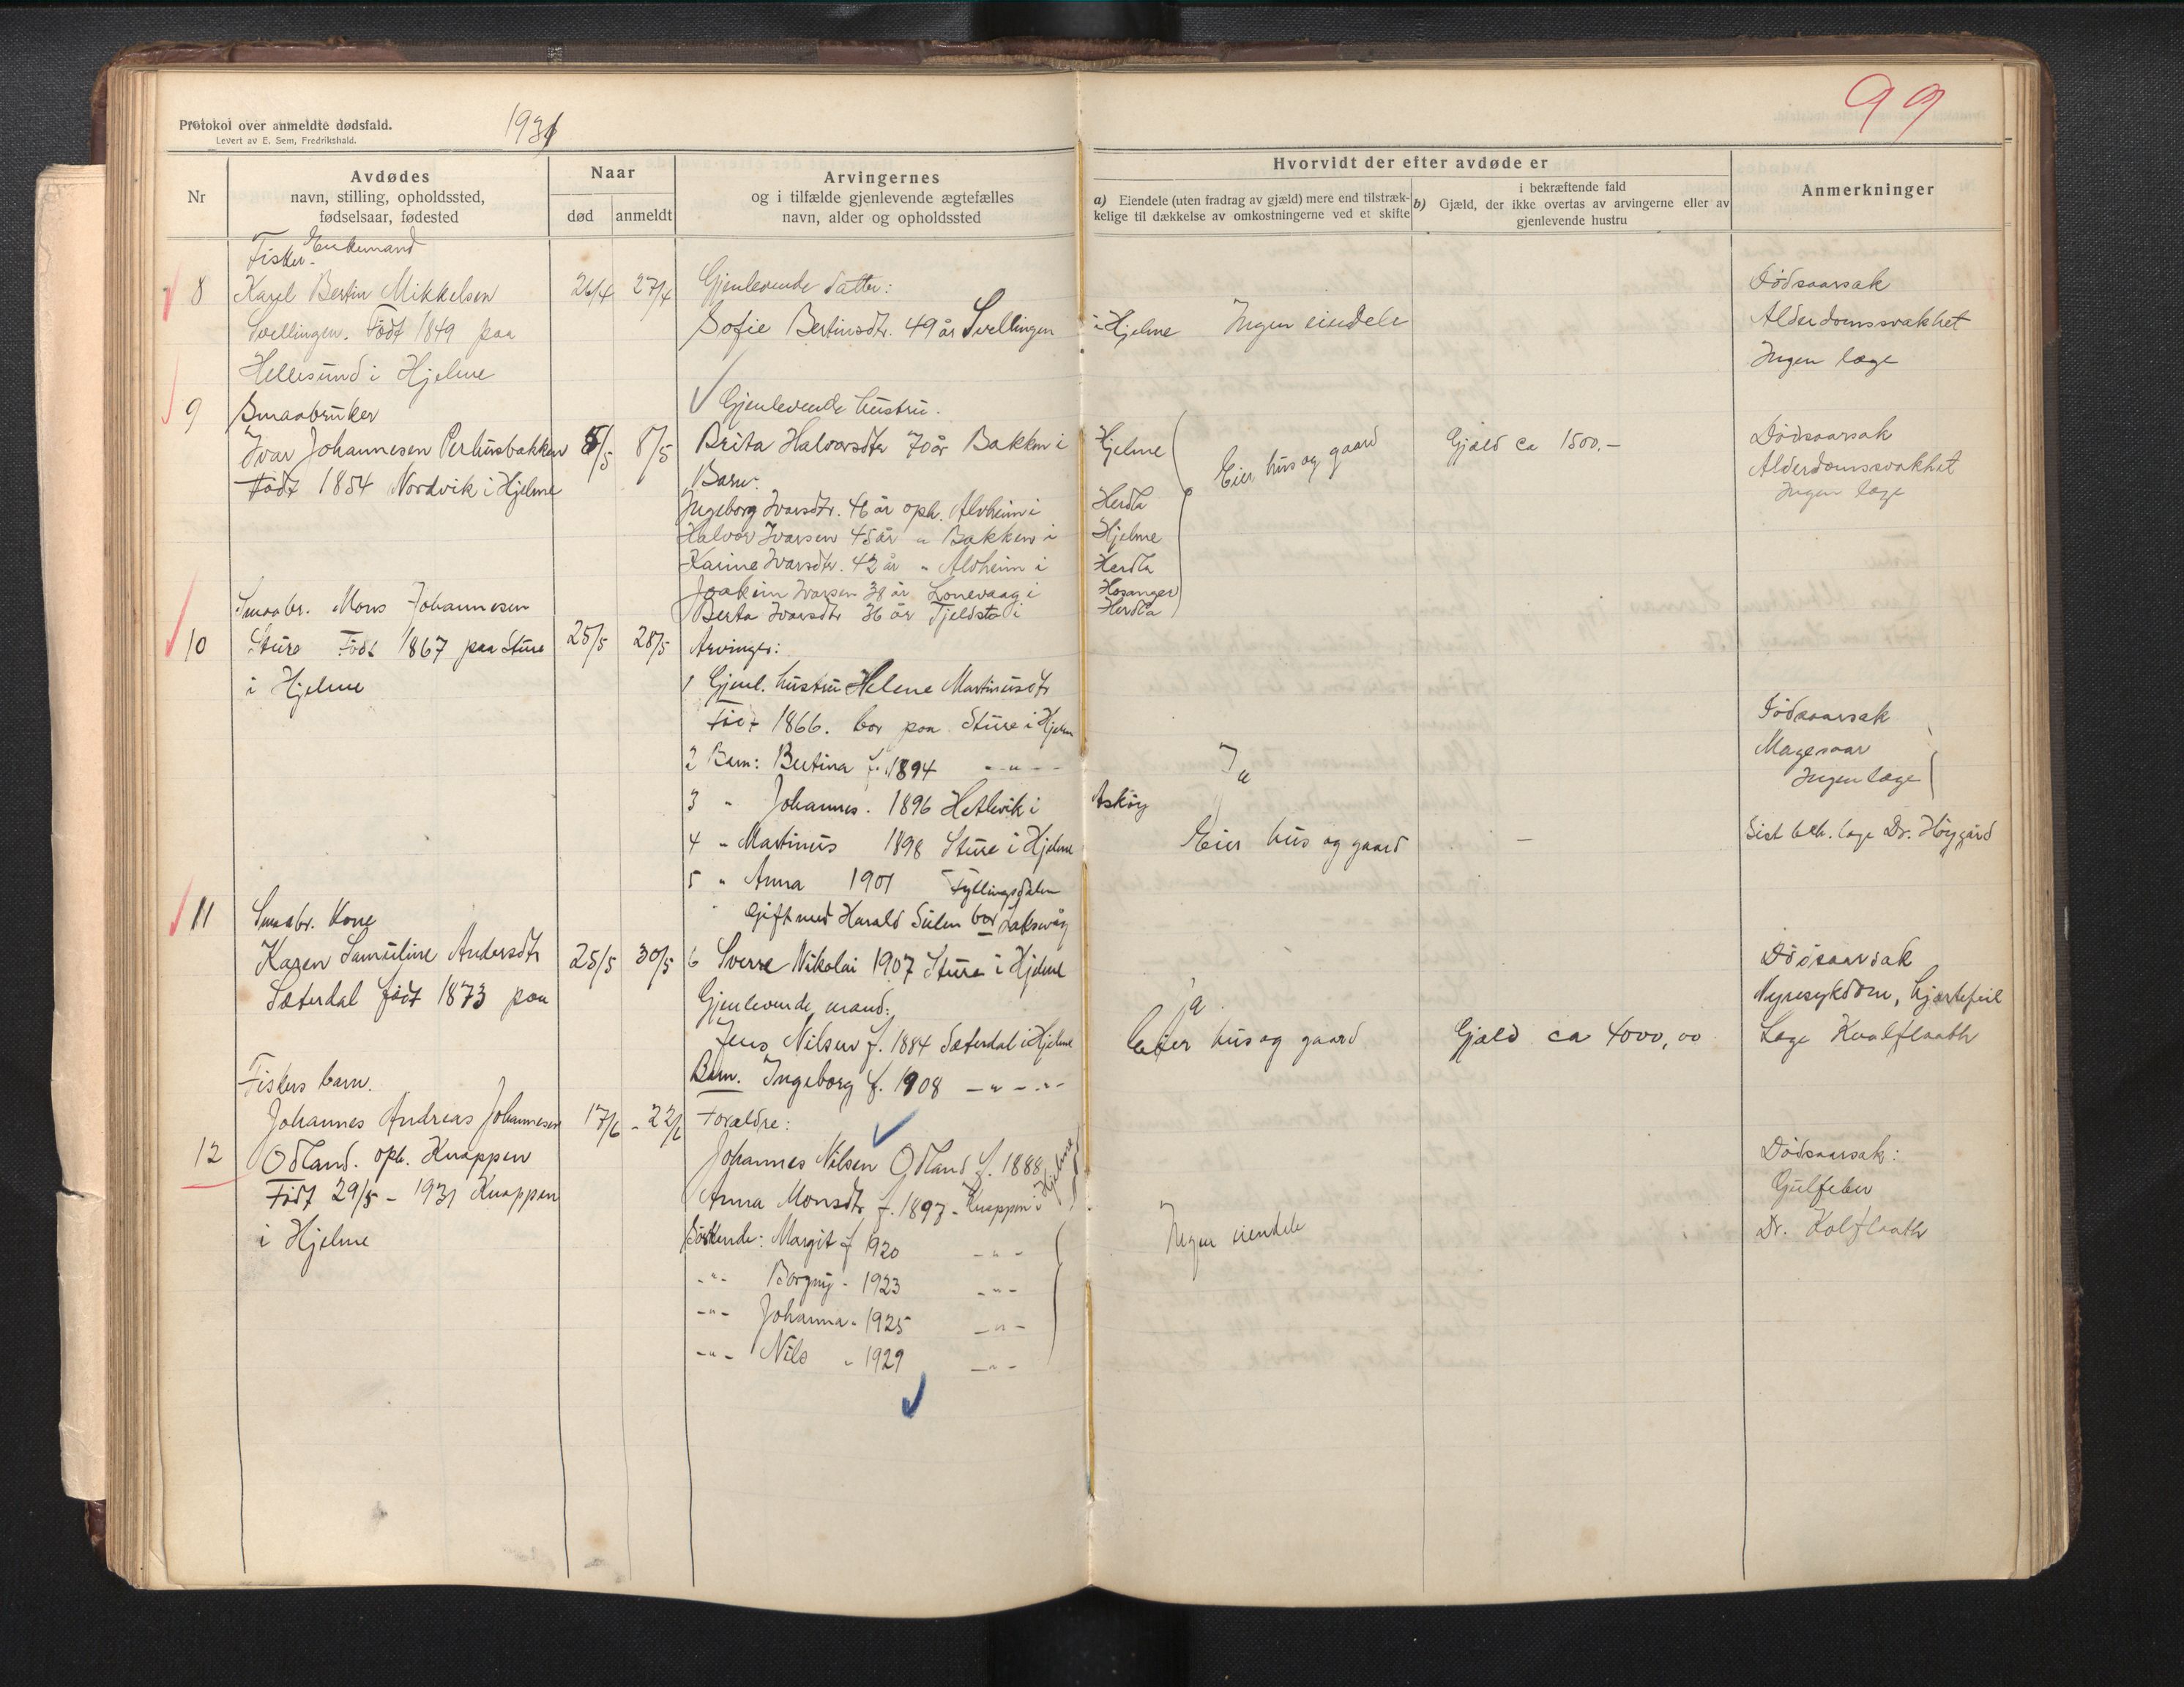 99
Protokol over anmeldte dødsfald.
Levert av E. Sem, Fredrikshald.
1931
Nr
Avdødes
navn, stilling, opholdssted,
fødselsaar, fødested
Naar
død
anmeldt
Arvingernes
og i tilfælde gjenlevende ægtefælles
navn, alder og opholdssted
Hvorvidt der efter avdøde er
a) Eiendele (uten fradrag av gjæld) mere end tilstræk-
kelige til dækkelse av omkostningerne ved et skifte
b) i bekræftende fald
Gjæld, der ikke overtas av arvingerne eller av
gjenlevende hustru
Anmerkninger
Fisker. Enkemand
8 Karel Bertin Mikkelsen 26/4 27/4 Gjenlevende datter: Dødsaarsak
Svellingen. Født 1849 paa Sofie Bertinsdtr. 49 år Svellingen i Hjelme Ingen eiendele Alderdomssvakhet
Hellesund i Hjelme Ingen læge
9 Smaabruker Gjenlevende hustru.
Ivar Johannesen Perhusbakken 8/5 Brita Halvorsdtr 70 år Bakken i Hjelme Eier hus og gaard Gjæld ca 1500.- Dødsaarsak
Født 1854 Nordvik i Hjelme Barn: Alderdomssvakhet
Ingeborg Ivarsdtr. 46 år oph. Alvheim i Herdla Ingen læge
Halvor Ivarsen 45 år " Bakken i Hjelme
Karine Ivarsdtr. 42 år " Alvheim i Herdla
Joakim Ivarsen 38 år Lonevaag i Hosanger
Berta Ivarsdtr 36 år Tjeldstø i Herdla
Smaabr. Mons Johannesen
10 Sture Født 1867 paa Sture 25/5 28/5 Arvinger:
i Hjelme 1 Gjenl. hustru Helene Martinusdtr
Født 1866. bor paa Sture i Hjelm Dødsaarsak
2 Barn: Bertina f. 1894 - " - Ja Magesaar
Ingen læge
3 " Johannes. 1896 Hetlevik i Askøy
4 " Martinus 1898 Sture i Hjelme Eier hus og gaard - Sist beh. læge Dr. Høygård
5 " Anna 1901 Fyllingsdalen
" Gift med Harald Sulen bor Laksevåg
11 Smaabr. Kone
Karen Samuline Andersdtr 25/5 30/5 6 Sverre Nikolai 1907 Sture i Hjelme Dødsaarsak
Sæterdal født 1873 paa Gjenlevende mand: ja. Nyresykdom, hjertefeil
Jens Nilsen f. 1884 Sæterdal i Hjelme Eier hus og gaard Gjæld ca 4000,00 Læge Kvalflaath
Barn. Ingeborg f. 1908 - " - " -
Fiskers barn.
Johannes Andreas Johannesen 17/6 - 22/6 Forældre:
12 Odland. oph. Knappen Johannes Nilsen Odland f. 1888 Dødsaarsak:
Født 29/5 - 1931 Knappen Anna Monsdtr f. 1897 - Knappen i Hjelme Gulfeber
i Hjelme Søskende: Margit f 1920 - " - Ingen eiendele Dr. Kolflaath
- " - Borgny - 1923 - " -
- " - Johanna " 1925 - " -
- " - Nils " 1929 - " -